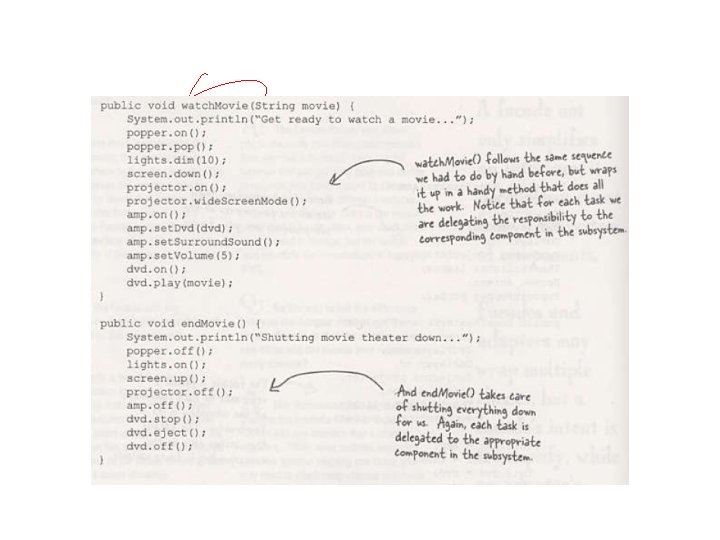 public void watchMovie(String movie) {
System.out.println("Get ready to watch a movie...");
popper.on();
popper.pop();
lights.dim(10);
screen.down();
projector.on();
projector.wideScreenMode();
amp.on();
amp.setDvd(dvd);
amp.setSurroundSound();
amp.setVolume(5);
dvd.on();
dvd.play(movie);
}
watchMovie() follows the same sequence
we had to do by hand before, but wraps
it up in a handy method that does all
the work. Notice that for each task we
are delegating the responsibility to the
corresponding component in the subsystem.
public void endMovie() {
System.out.println("Shutting movie theater down...");
popper.off();
lights.on();
screen.up();
projector.off();
amp.off();
dvd.stop();
dvd.eject();
dvd.off();
}
And endMovie() takes care
of shutting everything down
for us. Again, each task is
delegated to the appropriate
component in the subsystem.